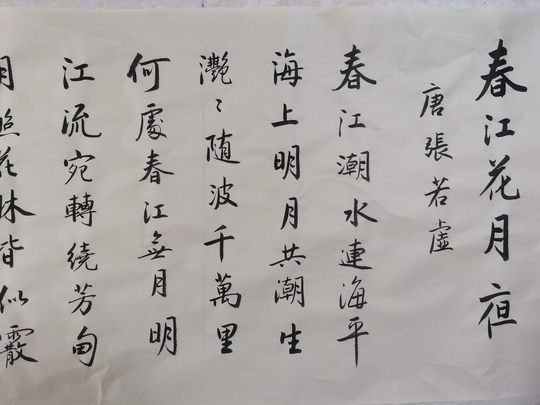 春江花月夜
唐張若虛
春江潮水連海平
海上明月共潮生
灔〻随波千萬里
何處春江無月明
江流宛轉繞芳甸
月照花林皆似霰